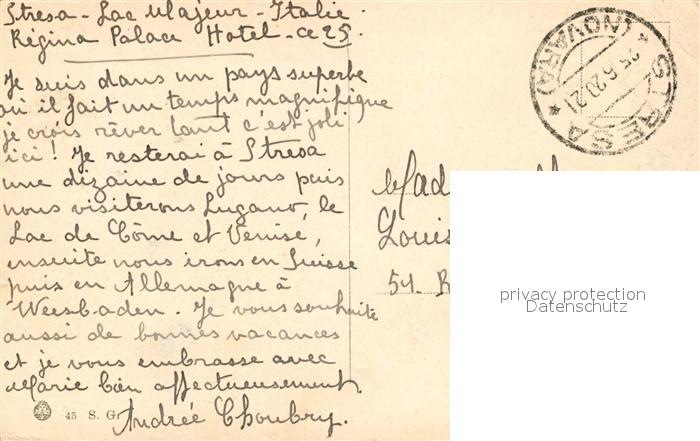 Stresa - Lac Majeur - Italie.
Régina Palace Hotel - ce 25.
Je suis dans un pays superbe
où il fait un temps magnifique
je crois rêver tant c'est joli
ici ! Je resterai à Stresa
une dizaine de jours puis
nous visiterons Lugano, le
Lac de Côme et Venise,
ensuite nous irons en Suisse
puis en Allemagne à
Weesbaden. Je vous souhaite
aussi de bonnes vacances
et je vous embrasse avec
Marie bien affectueusement.
Andrée Choubry.
45 S. G.
STRESA
(NOVARA)
25.6.29.21
Mad
Louis
51. R
privacy protection
Datenschutz